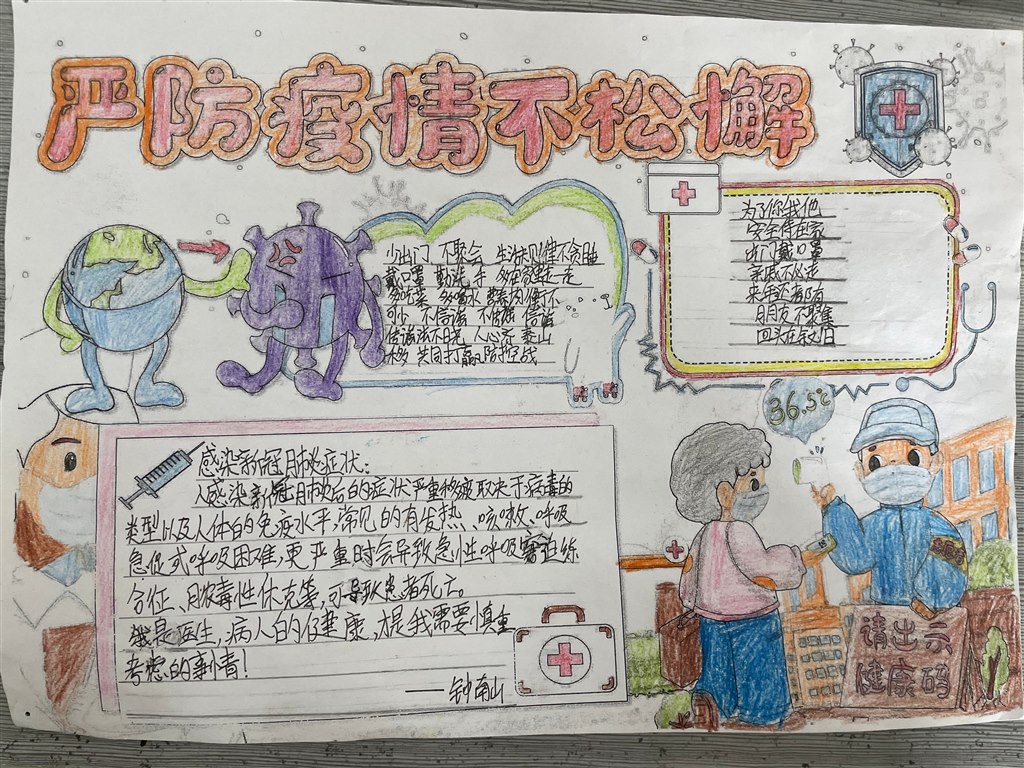 严防疫情不松懈
少出门 不聚会 生活规律不贪睡
戴口罩 勤洗手 多在家里走一走
多吃菜 多喝水 营养均衡不
可少 不信谣 不传谣 信谣
传谣法不饶 人心齐 泰山
移 共同打赢防控战
为了你我他
安全待在家
出门戴口罩
亲戚不必走
来年还都有
36.5℃
感染新冠肺炎症状:
人感染新冠肺炎后的症状严重程度取决于病毒的
类型以及人体的免疫水平,常见的有发热、咳嗽、呼吸
急促或呼吸困难,更严重时会导致急性呼吸窘迫综
合征、脓毒性休克等,可导致患者死亡。
我是医生,病人的健康,才是我需要慎重
考虑的事情!
——钟南山
请出示
健康码